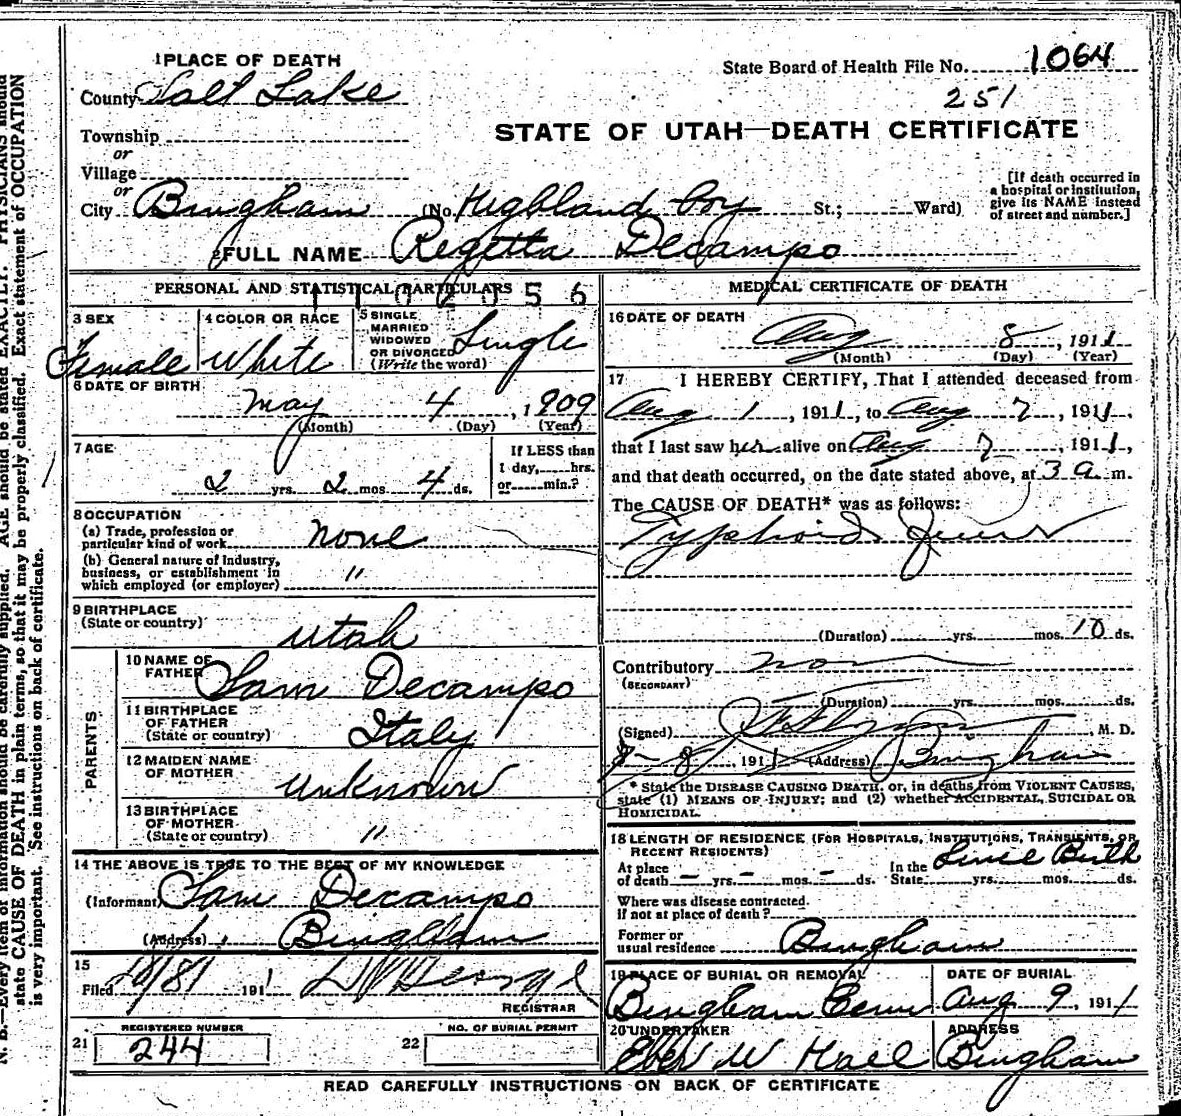 1 PLACE OF DEATH
State Board of Health File No. 1064
County Salt Lake
251
STATE OF UTAH—DEATH CERTIFICATE
Township
or
Village
or
City Bingham (No. Highland Boy St.; Ward)
[If death occurred in a hospital or institution, give its NAME instead of street and number.]
2 FULL NAME Regetta Decampo
PERSONAL AND STATISTICAL PARTICULARS
1102056
3 SEX
Female
4 COLOR OR RACE
White
5 SINGLE MARRIED WIDOWED OR DIVORCED (Write the word)
Single
6 DATE OF BIRTH
May 4, 1909
(Month) (Day) (Year)
7 AGE
2 yrs. 2 mos. 4 ds.
If LESS than 1 day, hrs. or min.?
8 OCCUPATION
(a) Trade, profession or particular kind of work none
(b) General nature of industry, business, or establishment in which employed (or employer) "
9 BIRTHPLACE
(State or country)
Utah
PARENTS
10 NAME OF FATHER Sam Decampo
11 BIRTHPLACE OF FATHER (State or country) Italy
12 MAIDEN NAME OF MOTHER unknown
13 BIRTHPLACE OF MOTHER (State or country) "
14 THE ABOVE IS TRUE TO THE BEST OF MY KNOWLEDGE
(Informant) Sam Decampo
(Address) Bingham
15
Filed 191
REGISTRAR
REGISTERED NUMBER
21 244
NO. OF BURIAL PERMIT
22
MEDICAL CERTIFICATE OF DEATH
16 DATE OF DEATH
Aug 8, 1911
(Month) (Day) (Year)
17 I HEREBY CERTIFY, That I attended deceased from
Aug 1, 1911, to Aug 7, 1911,
that I last saw her alive on Aug 7, 1911,
and that death occurred, on the date stated above, at 3 a. m.
The CAUSE OF DEATH* was as follows:
Typhoid Fever
(Duration) yrs. mos. 10 ds.
Contributory none
(SECONDARY)
(Duration) yrs. mos. ds.
(Signed) , M. D.
8-8, 1911 (Address) Bingham
* State the DISEASE CAUSING DEATH, or, in deaths from VIOLENT CAUSES, state (1) MEANS OF INJURY; and (2) whether ACCIDENTAL, SUICIDAL OR HOMICIDAL.
18 LENGTH OF RESIDENCE (FOR HOSPITALS, INSTITUTIONS, TRANSIENTS, OR RECENT RESIDENTS)
At place of death - yrs. - mos. - ds. In the State yrs. mos. ds.
Since Birth
Where was disease contracted, if not at place of death?
Former or usual residence Bingham
19 PLACE OF BURIAL OR REMOVAL
Bingham Cem
DATE OF BURIAL
Aug 9, 1911
20 UNDERTAKER
Eber W Hall
ADDRESS
Bingham
READ CAREFULLY INSTRUCTIONS ON BACK OF CERTIFICATE
N. B.—Every item of information should be carefully supplied. AGE should be stated EXACTLY. PHYSICIANS should
state CAUSE OF DEATH in plain terms, so that it may be properly classified. Exact statement of OCCUPATION
is very important. See instructions on back of certificate.